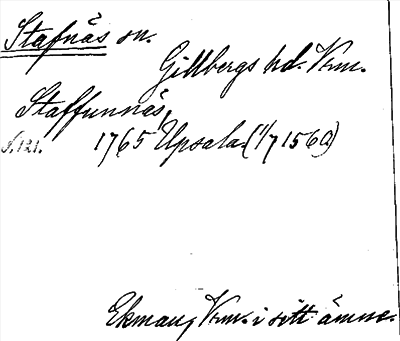 Stafnäs sn.
Gillbergs hd. Vrm.
Staffunnäs,
s. 121. 1765 Upsala. (1/7 1560)
Ekman, Vrm. i sitt ämne.